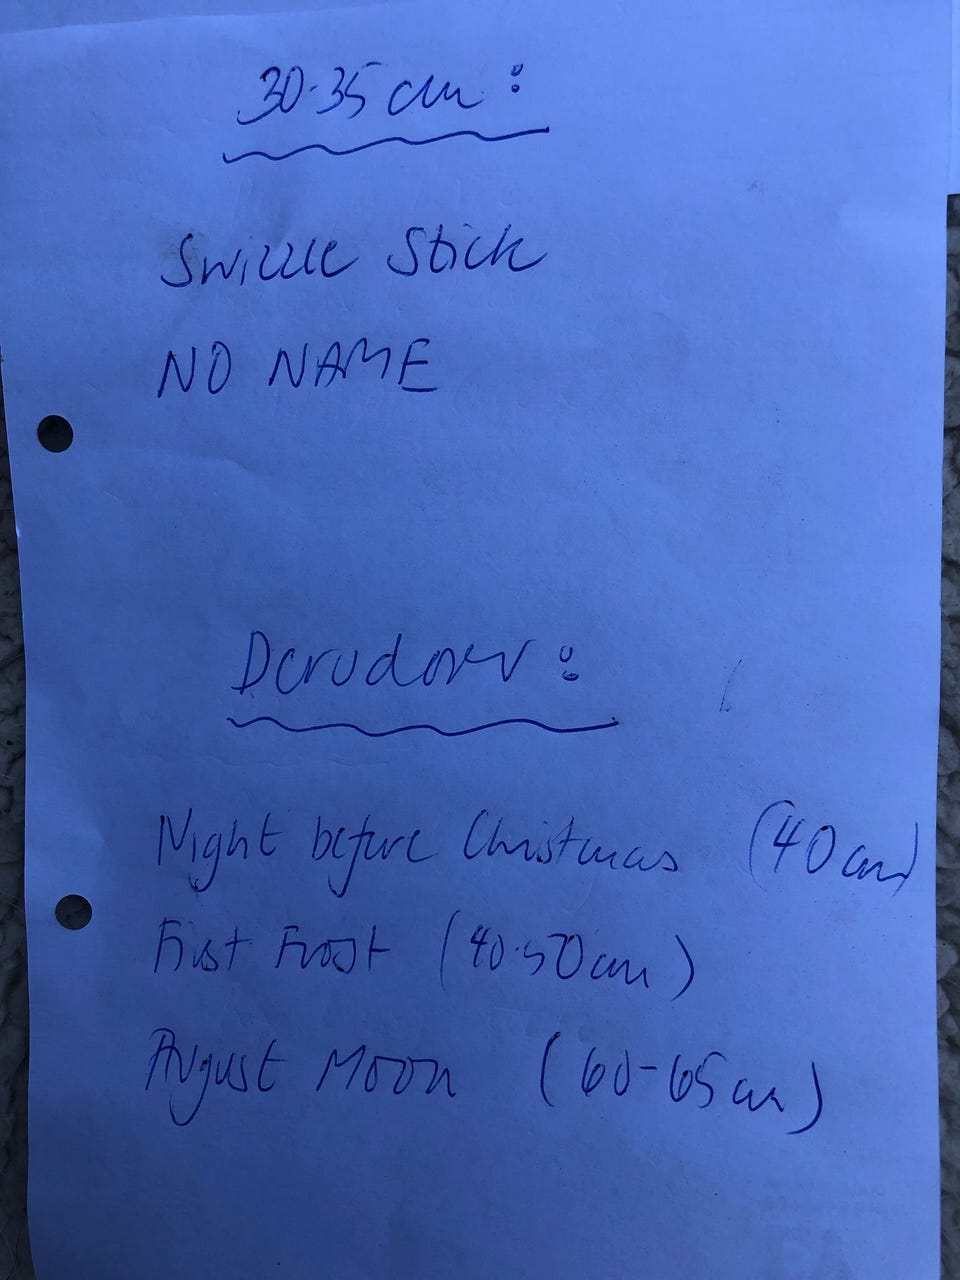 30-35 cm:
Swizzle Stick
NO NAME
Derudover:
Night before Christmas (40 cm)
First Frost (40-50 cm)
August Moon (60-65 cm)